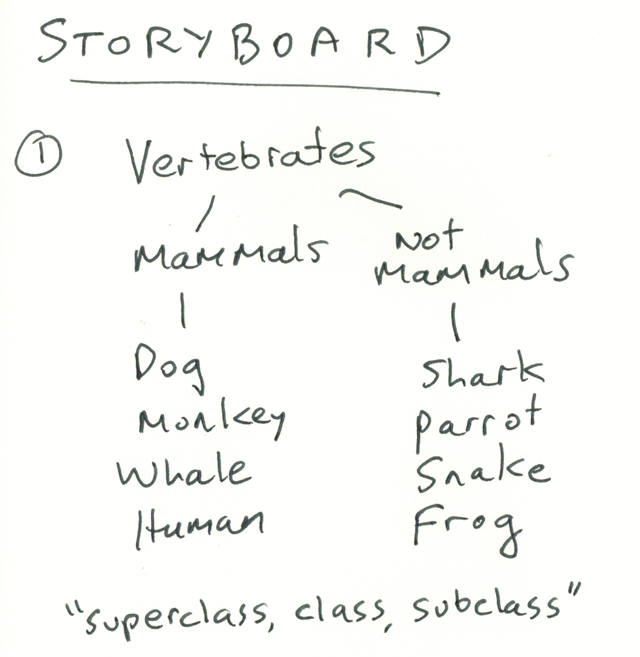 STORYBOARD
① Vertebrates
Mammals
Not
Mammals
Dog
Monkey
Whale
Human
Shark
Parrot
Snake
Frog
"superclass, class, subclass"